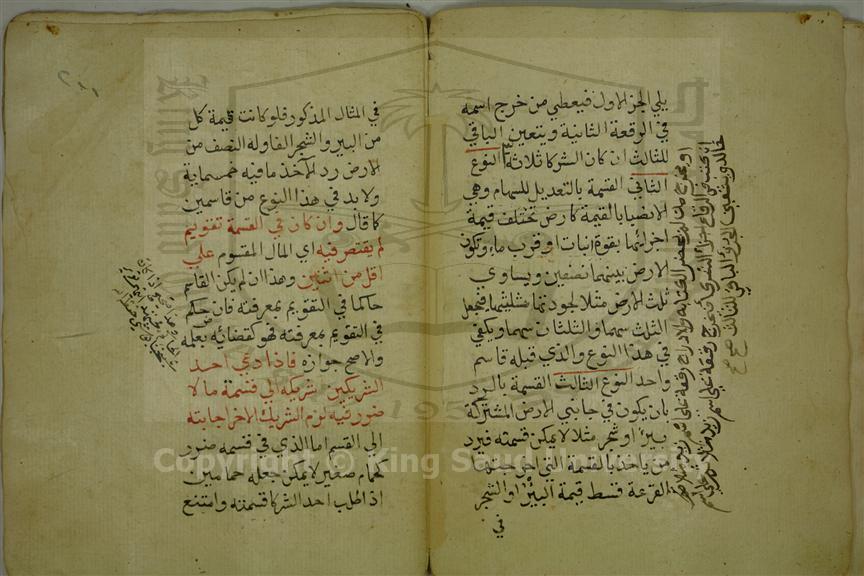 يلي الجزء الاول فيعطي من خرج اسمه
في الرقعة الثانية ويتعين الباقي
للثالث ان كان الشركا ثلاثة النوع
الثاني القسمة بالتعديل للسهام وهي
الانصبا بالقيمة كارض تختلف قيمة
اجزائها بقوة انبات او قرب ماء وتكون
الارض بينهما نصفين ويساوي
ثلث الارض مثلا لجودتها ثلثيها فيجعل
الثلث سهما والثلثان سهما ويكفي
في هذا النوع والذي قبله قاسم
واحد النوع الثالث القسمة بالرد
بان يكون في جانبي الارض المشتركة
بير او شجر مثلا لا يمكن قسمته فيرد
من ياخذ بالقسمة التي اخرجتها
القرعة قسط قيمة البئر او الشجر
في
في المثال المذكور فلو كانت قيمة كل
من البير والشجر الفا وله النصف من
الارض رد الآخذ ما فيه خمسماية
ولا بد في هذا النوع من قاسمين
كما قال وان كان في القسمة تقويم
لم يقتصر فيه اي المال المقسوم علي
اقل من اثنين وهذا ان لم يكن القاسم
حاكما في التقويم بمعرفته فان حكم
في التقويم بمعرفته فهو كقضائه بعلمه
والاصح جوازه فاذا دعي احد
الشريكين شريكه الي قسمة ما لا
ضرر فيه لزم الشريك الاخر اجابته
الي القسم اما الذي في قسمه ضرر
كحمام صغير لا يمكن جعله حمامين
اذا طلب احد الشركا قسمته وامتنع
Copyright © King Saud University
195